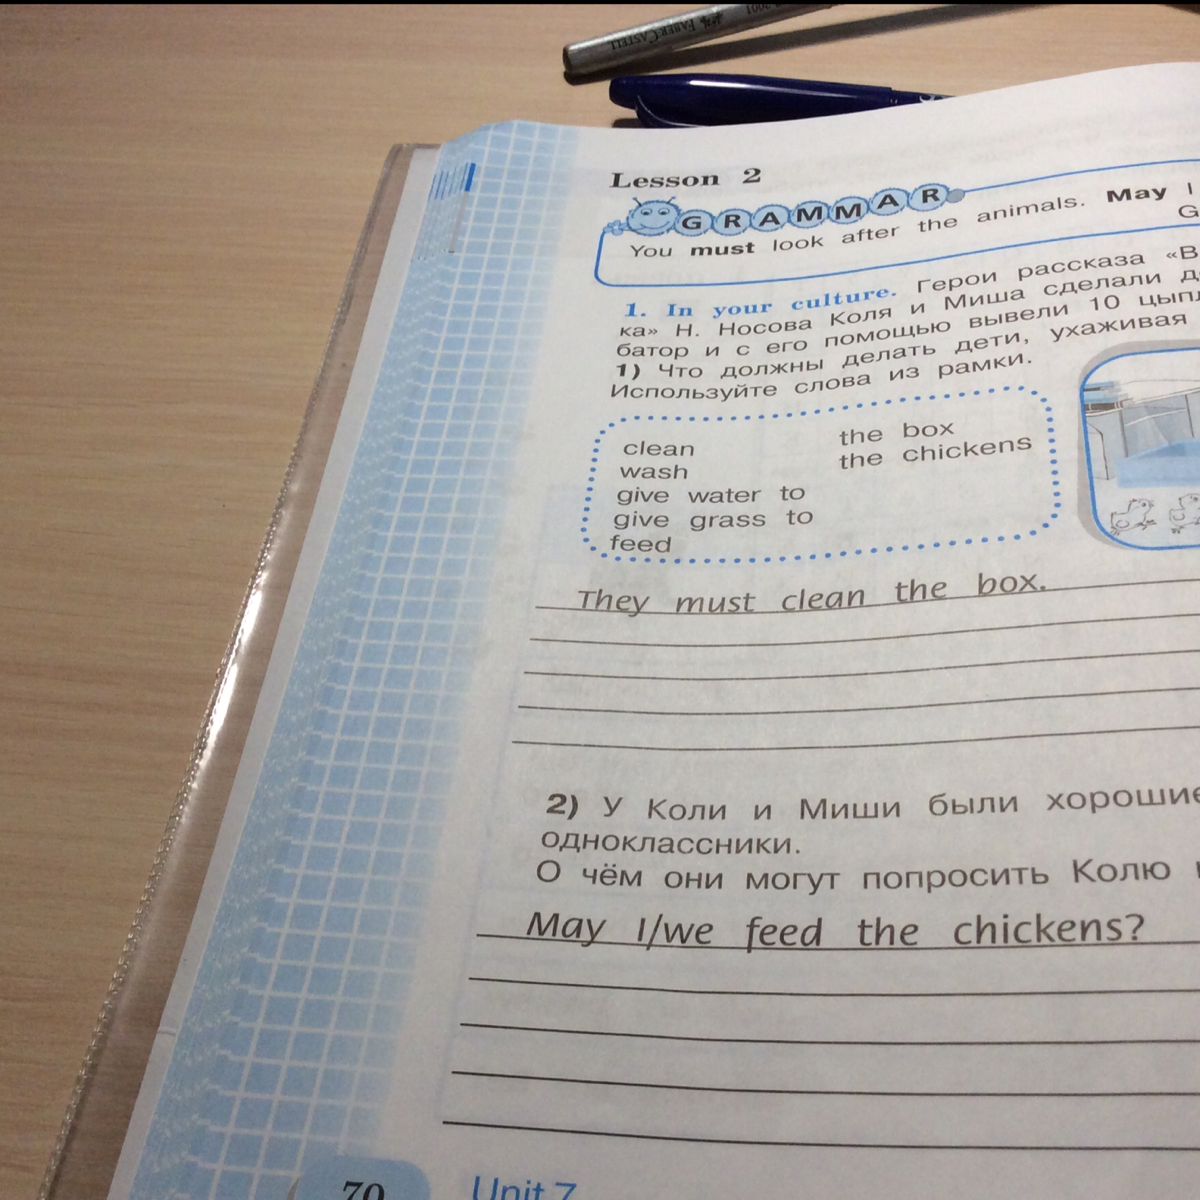 FABER CASTELL
Lesson 2
GRAMMAR
You must look after the animals. May I
1. In your culture. Герои рассказа «В
ка» Н. Носова Коля и Миша сделали
батор и с его помощью вывели 10 цыпл
1) Что должны делать дети, ухаживая
Используйте слова из рамки.
clean
wash
give water to
give grass to
feed
the box
the chickens
They must clean the box.
2) У Коли и Миши были хорошие
одноклассники.
О чём они могут попросить Колю
May I/we feed the chickens?
70 Unit 7